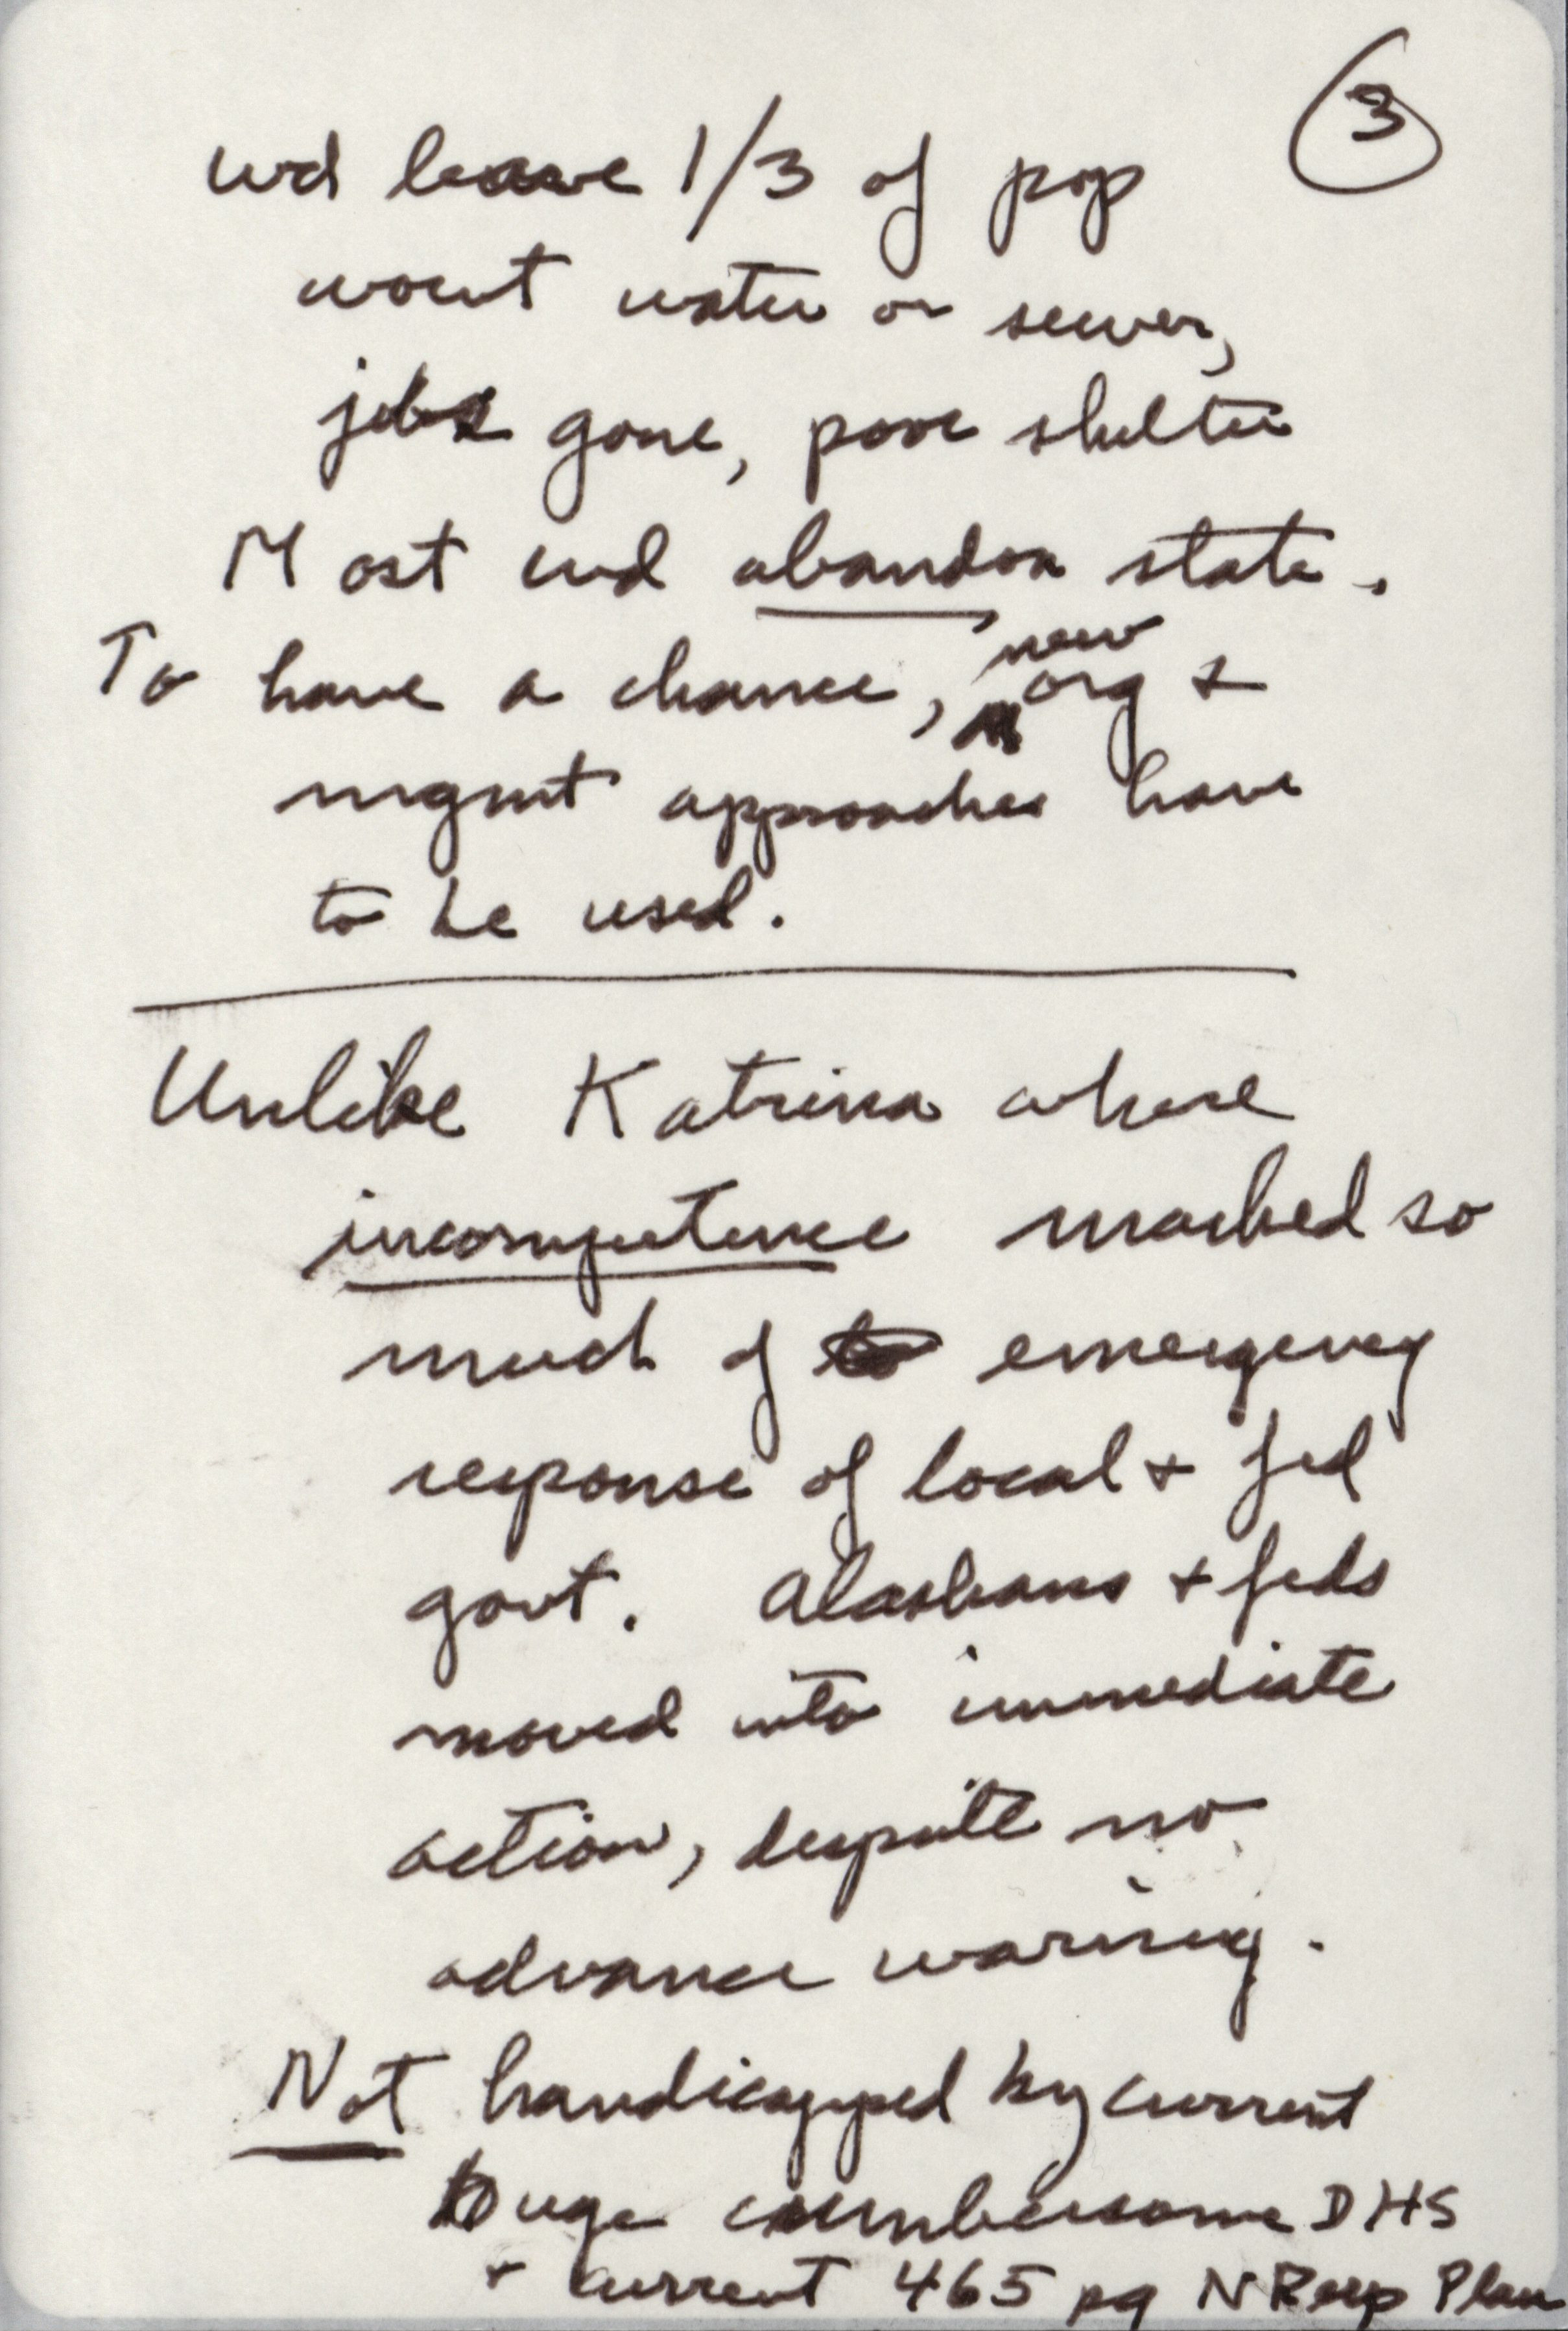 3
wd leave 1/3 of pop
wout water or sewer,
jobs gone, poor shelter
Most wd abandon state.
new
To have a chance, org &
mgmt approaches have
to be used.
Unlike Katrina where
incompetence marked so
much of emergency
response of local + fed
govt. Alaskans + feds
moved into immediate
action, despite no
advance warning.
Not handicapped by current
huge cumbersome DHS
+ current 465 pg N Resp Plan